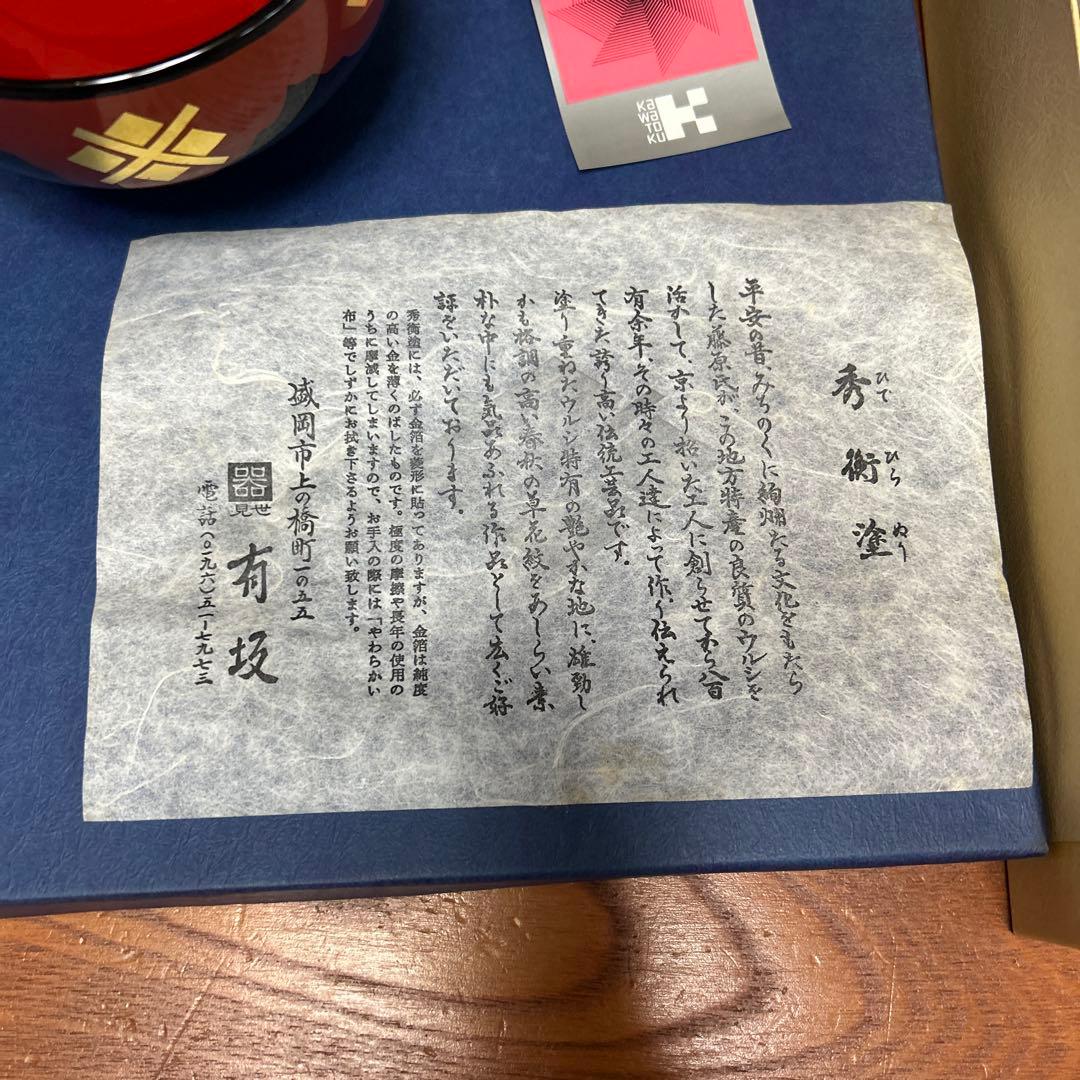 KaWaToKu
秀衡塗
ひでひらぬり
平安の昔、みちのくに絢爛たる文化をもたら
した藤原氏が、この地方特産の良質のウルシを
活かして、京より招いた工人に創らせてから八百
有余年、その時々の工人達によって作り伝えられ
てきた誇り高い伝統工芸品です。
塗り重ねたウルシ特有の艶やかな地に、雄勁し
かも格調の高い春秋の草花紋をあしらい素
朴な中にも気品あふれる作品として広くご好
評をいただいております。
秀衡塗には、必ず金箔を菱形に貼ってありますが、金箔は純度
の高い金を薄くのばしたものです。極度の摩擦や長年の使用の
うちに摩滅してしまいますので、お手入の際には「やわらかい
布」等でしずかにお拭き下さるようお願い致します。
盛岡市上の橋町一の五五
器
見世
有坂
電話(〇一九六)五一ー七九七三